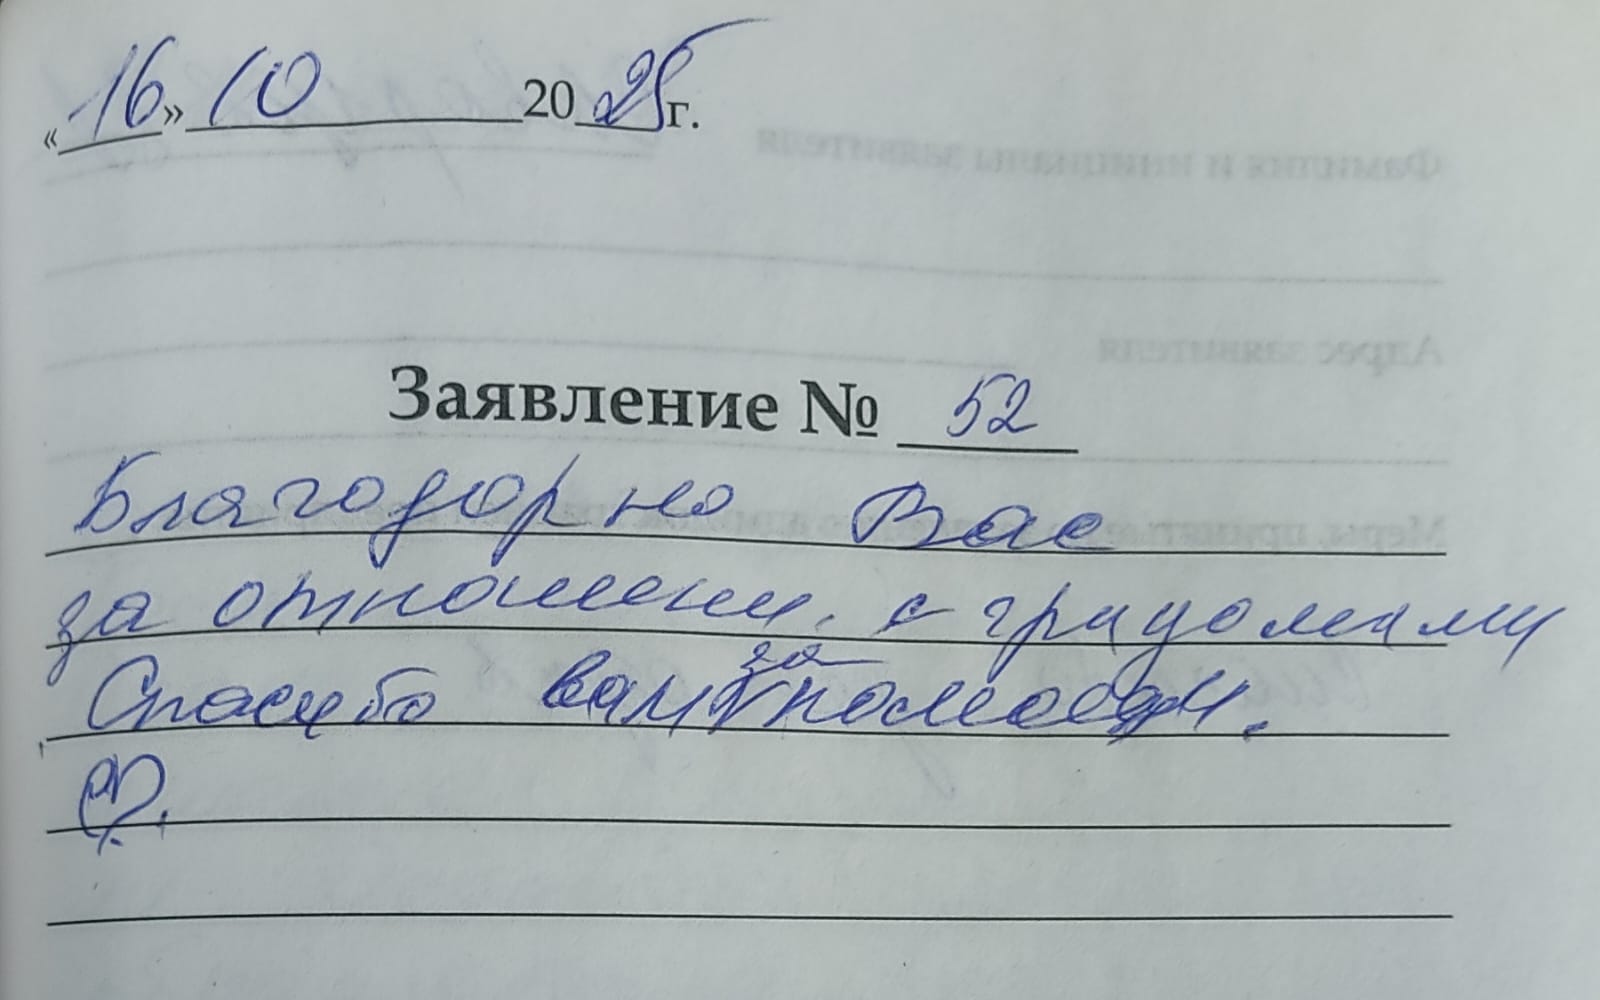 «16» 10 2025г.
Заявление № 52
Благодорно Вас
за отношени. с
Спасибо вам за помощь.